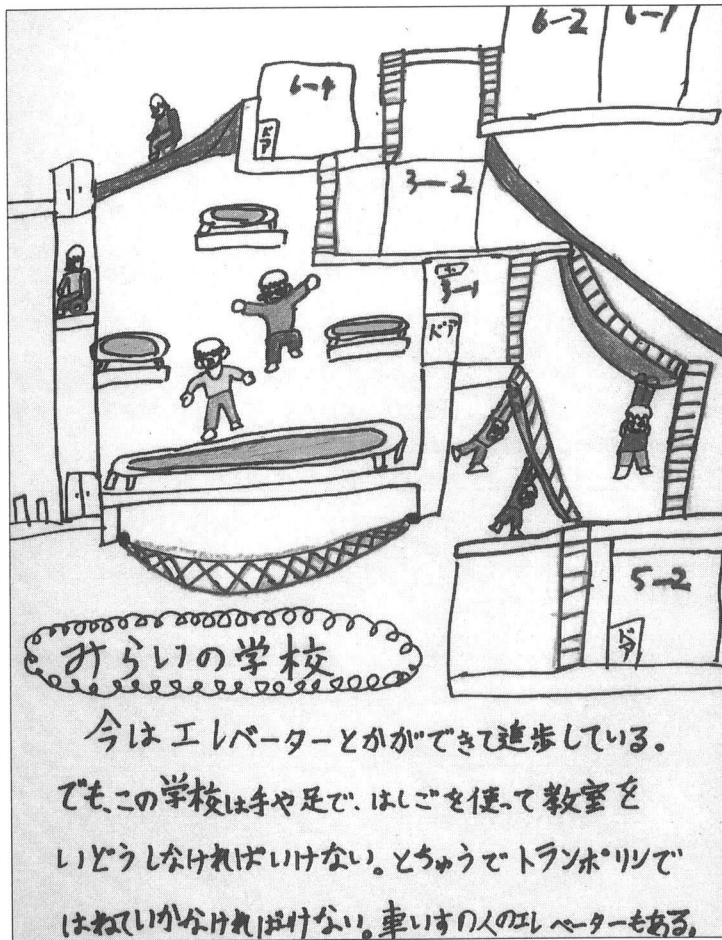 6-2
6-1
6-4
ドア
3-2
3-1
ドア
5-2
ドア
みらいの学校
今はエレベーターとかができて進歩している。
でも、この学校は手や足で、はしごを使って教室を
いどうしなければいけない。とちゅうでトランポリンで
はねていかなければけない。車いすの人のエレベーターもある。